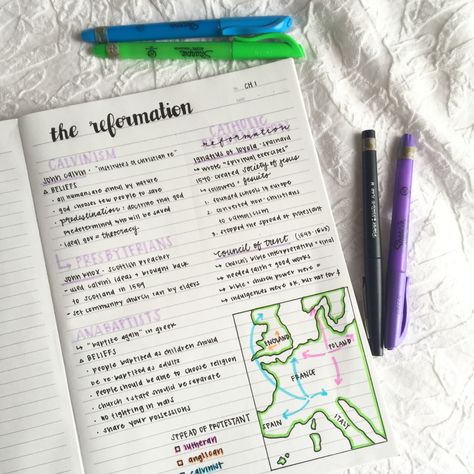 Sharpie
CH 1
the reformation
CALVINISM
John Calvin - "institutes of christian re"
& BELIEFS
· all humans are sinful by nature
· god chooses few people to save
· predestination: doctrine that god
predetermined who will be saved
· local gov = theocracy
↳ PRESBYTERIANS
John Knox - scottish preacher
→ used calvin's ideas & brought back
to scotland in 1559
· set community church ran by elders
ANABAPTISTS
↳ "baptise again" in greek
& BELIEFS
· people baptised as children should
be re-baptised as adults
· people should be able to choose religion
· church & state should be separate
· no fighting in wars
· share your possessions
CATHOLIC
reformation
Ignatius of Loyola - spaniard
↳ wrote "spiritual exercises"
1540 created society of jesus
↳ members = jesuits
1. founded schools in europe
2. converted non-christians
to catholicism
3. stopped the spread of protestant
council of trent (1545-1563)
↳ church's bible interpretation = final
↳ needed faith & good works
↳ bible & church power
↳ indulgences
SPREAD OF PROTESTANT
lutheran
anglican
calvinist
ENGLAND
POLAND
FRANCE
SPAIN
ITALY